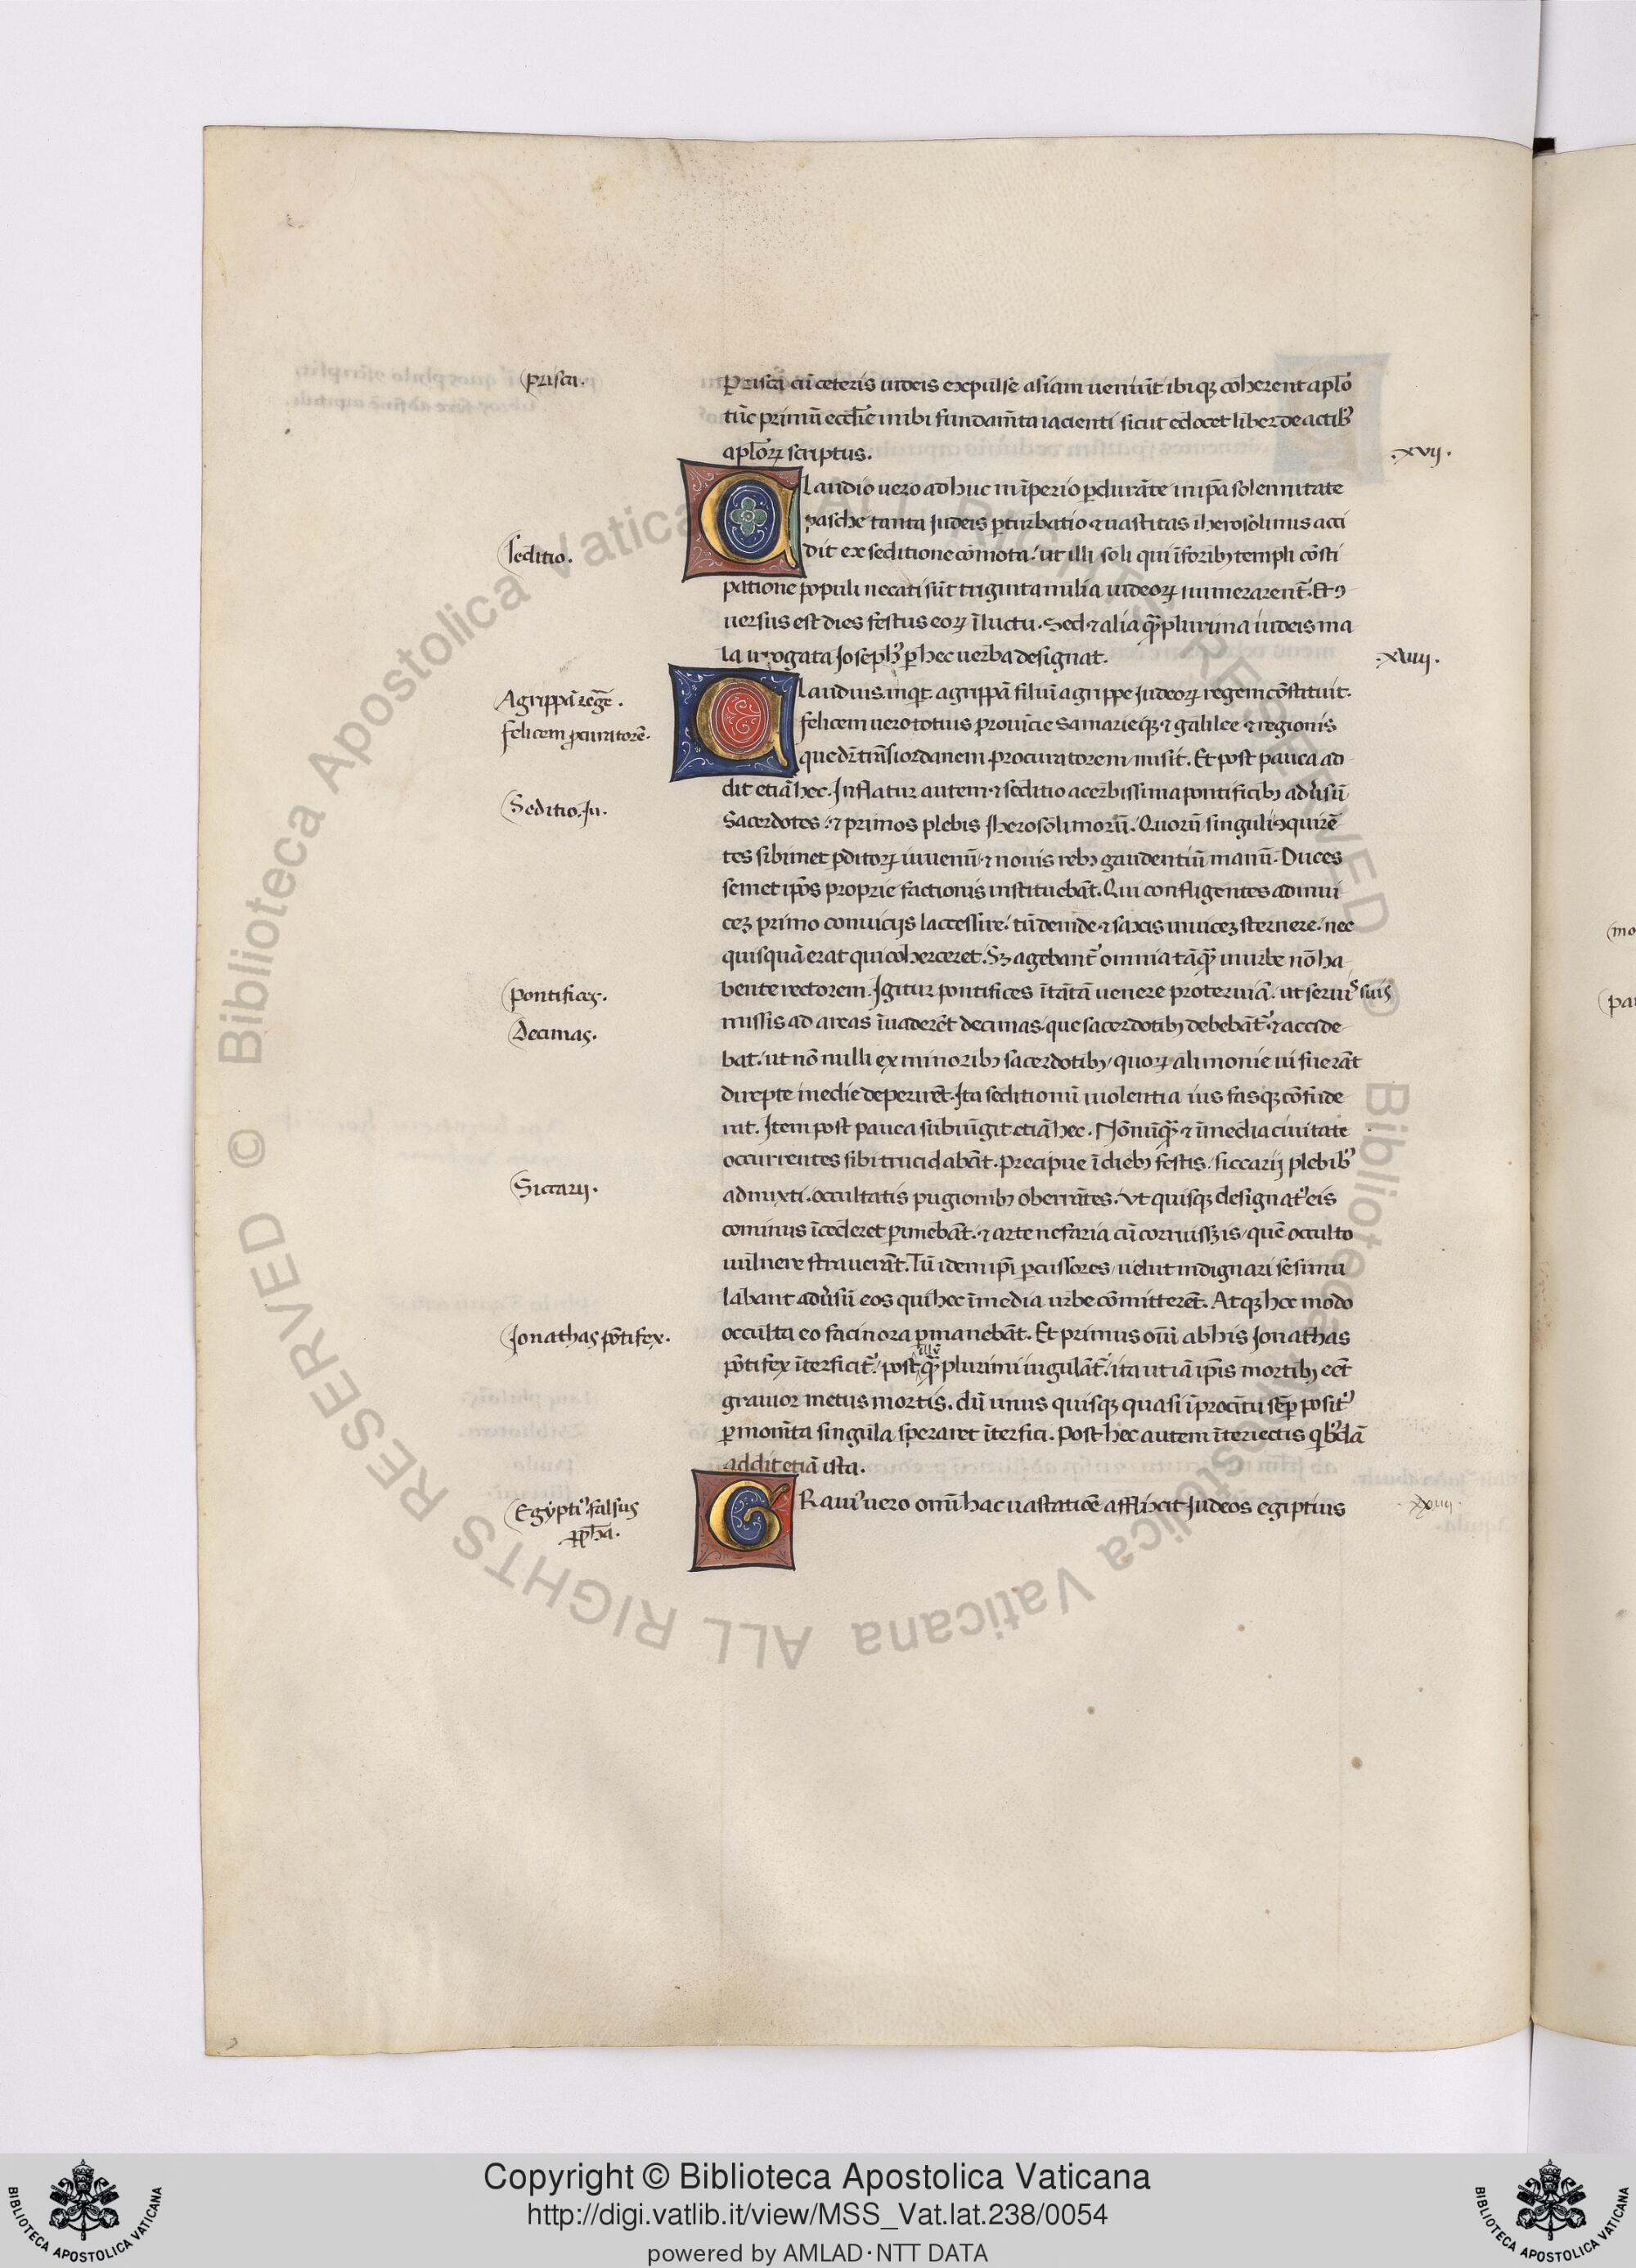 prisca.
Prisca cū ceteris iudeis expulse asiam ueniūt ibiqꝫ coherent aplo᷎
tūc primū eccl̄ie inibi fundam̄ta iacienti sicut edocet liber de actibꝰ
apl̄oꝝ scriptus.
.xvij.
Claudio uero adhuc in īperio ꝑdurāte in ip̄a solennitate
pasche tanta Judeis ꝑturbatio ⁊ uastitas iherosolimis acci
seditio.
dit ex seditione cōmota. ut illi soli qui ī foribꝫ templi cōsti
patione populi necati sūt triginta milia iudeoꝝ numerarent᷑. Et ꝯ
uersus est dies festus eoꝝ ī luctu. Sed ⁊ alia q̄ꝫ plurima iudeis ma
la irrogata Josephꝰ ꝑ hec uerba designat.
.xviij.
Claudius. inqͥt. agrippā filiū agrippe Judeoꝝ regem cōstituit.
Agrippā regē.
felicem uero totius prouīcie Samarieqꝫ ⁊ galilee ⁊ regionis
felicem ꝓcuratorē.
que dr̄ trās iordanem procuratorem misit. Et post pauca ad
dit etiā hec. Inflatur autem ⁊ seditio acerbissima pontificibꝫ adūsū
Seditio. Ju.
Sacerdotes. ⁊ primos plebis Jherosolimorū. Quorū singuli ꝯquirē
tes sibimet ꝑditoꝝ iuuenū ⁊ nouis rebꝫ gaudentiū manū. Duces
semet ip̄os proprie factionis instituebāt. Qui confligentes adinui
ceꝫ primo conuicijs laccessire. tū deinde ⁊ saxis inuiceꝫ sternere. nec
quisquā erat qui coherceret. Sꝫ agebant᷑ omnia tāq̄ꝫ in urbe nō ha
pontifices.
bente rectorem. Igitur pontifices ī tātā uenere proteruiā. ut seruis suis
Decimas.
missis ad areas īuaderēt decimas. que sacerdotibꝫ debebāt᷑. ⁊ accide
bat. ut nō nulli ex minoribꝫ sacerdotibꝫ quoꝝ alimonie ui fuerāt
direpte inedie deperirēt. Ita seditionū uiolentia ius fasqꝫ cōfūde
rat. Item post pauca subiūgit etiā hec. Nōnūq̄ꝫ ⁊ ī media ciuitate
occurrentes sibi trucidabāt. precipue ī diebꝫ festis. siccarij plebibꝰ
Siccarij.
admixti. occultatis pugionibꝫ oberrātes. Vt quisqꝫ designatꝰ eis
cominus īcederet ꝑimebāt. ⁊ arte nefaria cū corruissꝫ is. quē occulto
uulnere strauerāt. Tū idem ip̄i ꝑcussores. uelut indignari se simu
labant adūsū eos qui hec ī media urbe cōmitterēt. Atqꝫ hec modo
Jonathas pōtifex.
occulta eo facinora ꝑmanebāt. Et primus oīū ab his Jonathas
pōtifex īterficit᷑. post illū q̄ꝫ plurimi iugulāt᷑. ita ut iā ip̄is mortibꝫ eēt
grauior metus mortis. dū unus quisqꝫ quasi ī procītu sēꝑ positꝰ
ꝑ mom̄ta singula speraret īterfici. Post hec autem īteriectis qͥbꝰdā
addit etiā ista.
Egyptiꝰ falsus
GRauiꝰ uero om̄ī hac uastatiōe afflixit Judeos egiptius
ꝓph̄a.
Copyright © Biblioteca Apostolica Vaticana
http://digi.vatlib.it/view/MSS_Vat.lat.238/0054
powered by AMLAD·NTT DATA
BIBLIOTECA APOSTOLICA VATICANA
BIBLIOTECA APOSTOLICA VATICANA
© Biblioteca Apostolica Vaticana ALL RIGHTS RESERVED
© Biblioteca Apostolica Vaticana ALL RIGHTS RESERVED